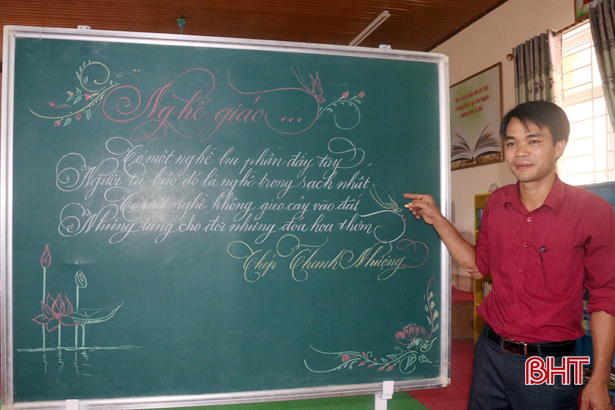 BHT
Nghề giáo...
Có một nghề bụi phấn đầy tay
Người ta bảo đó là nghề trong sạch nhất
Có một nghề không gieo cây vào đất
Nhưng tặng cho đời những đóa hoa thơm
Thanh Nhường
BHT